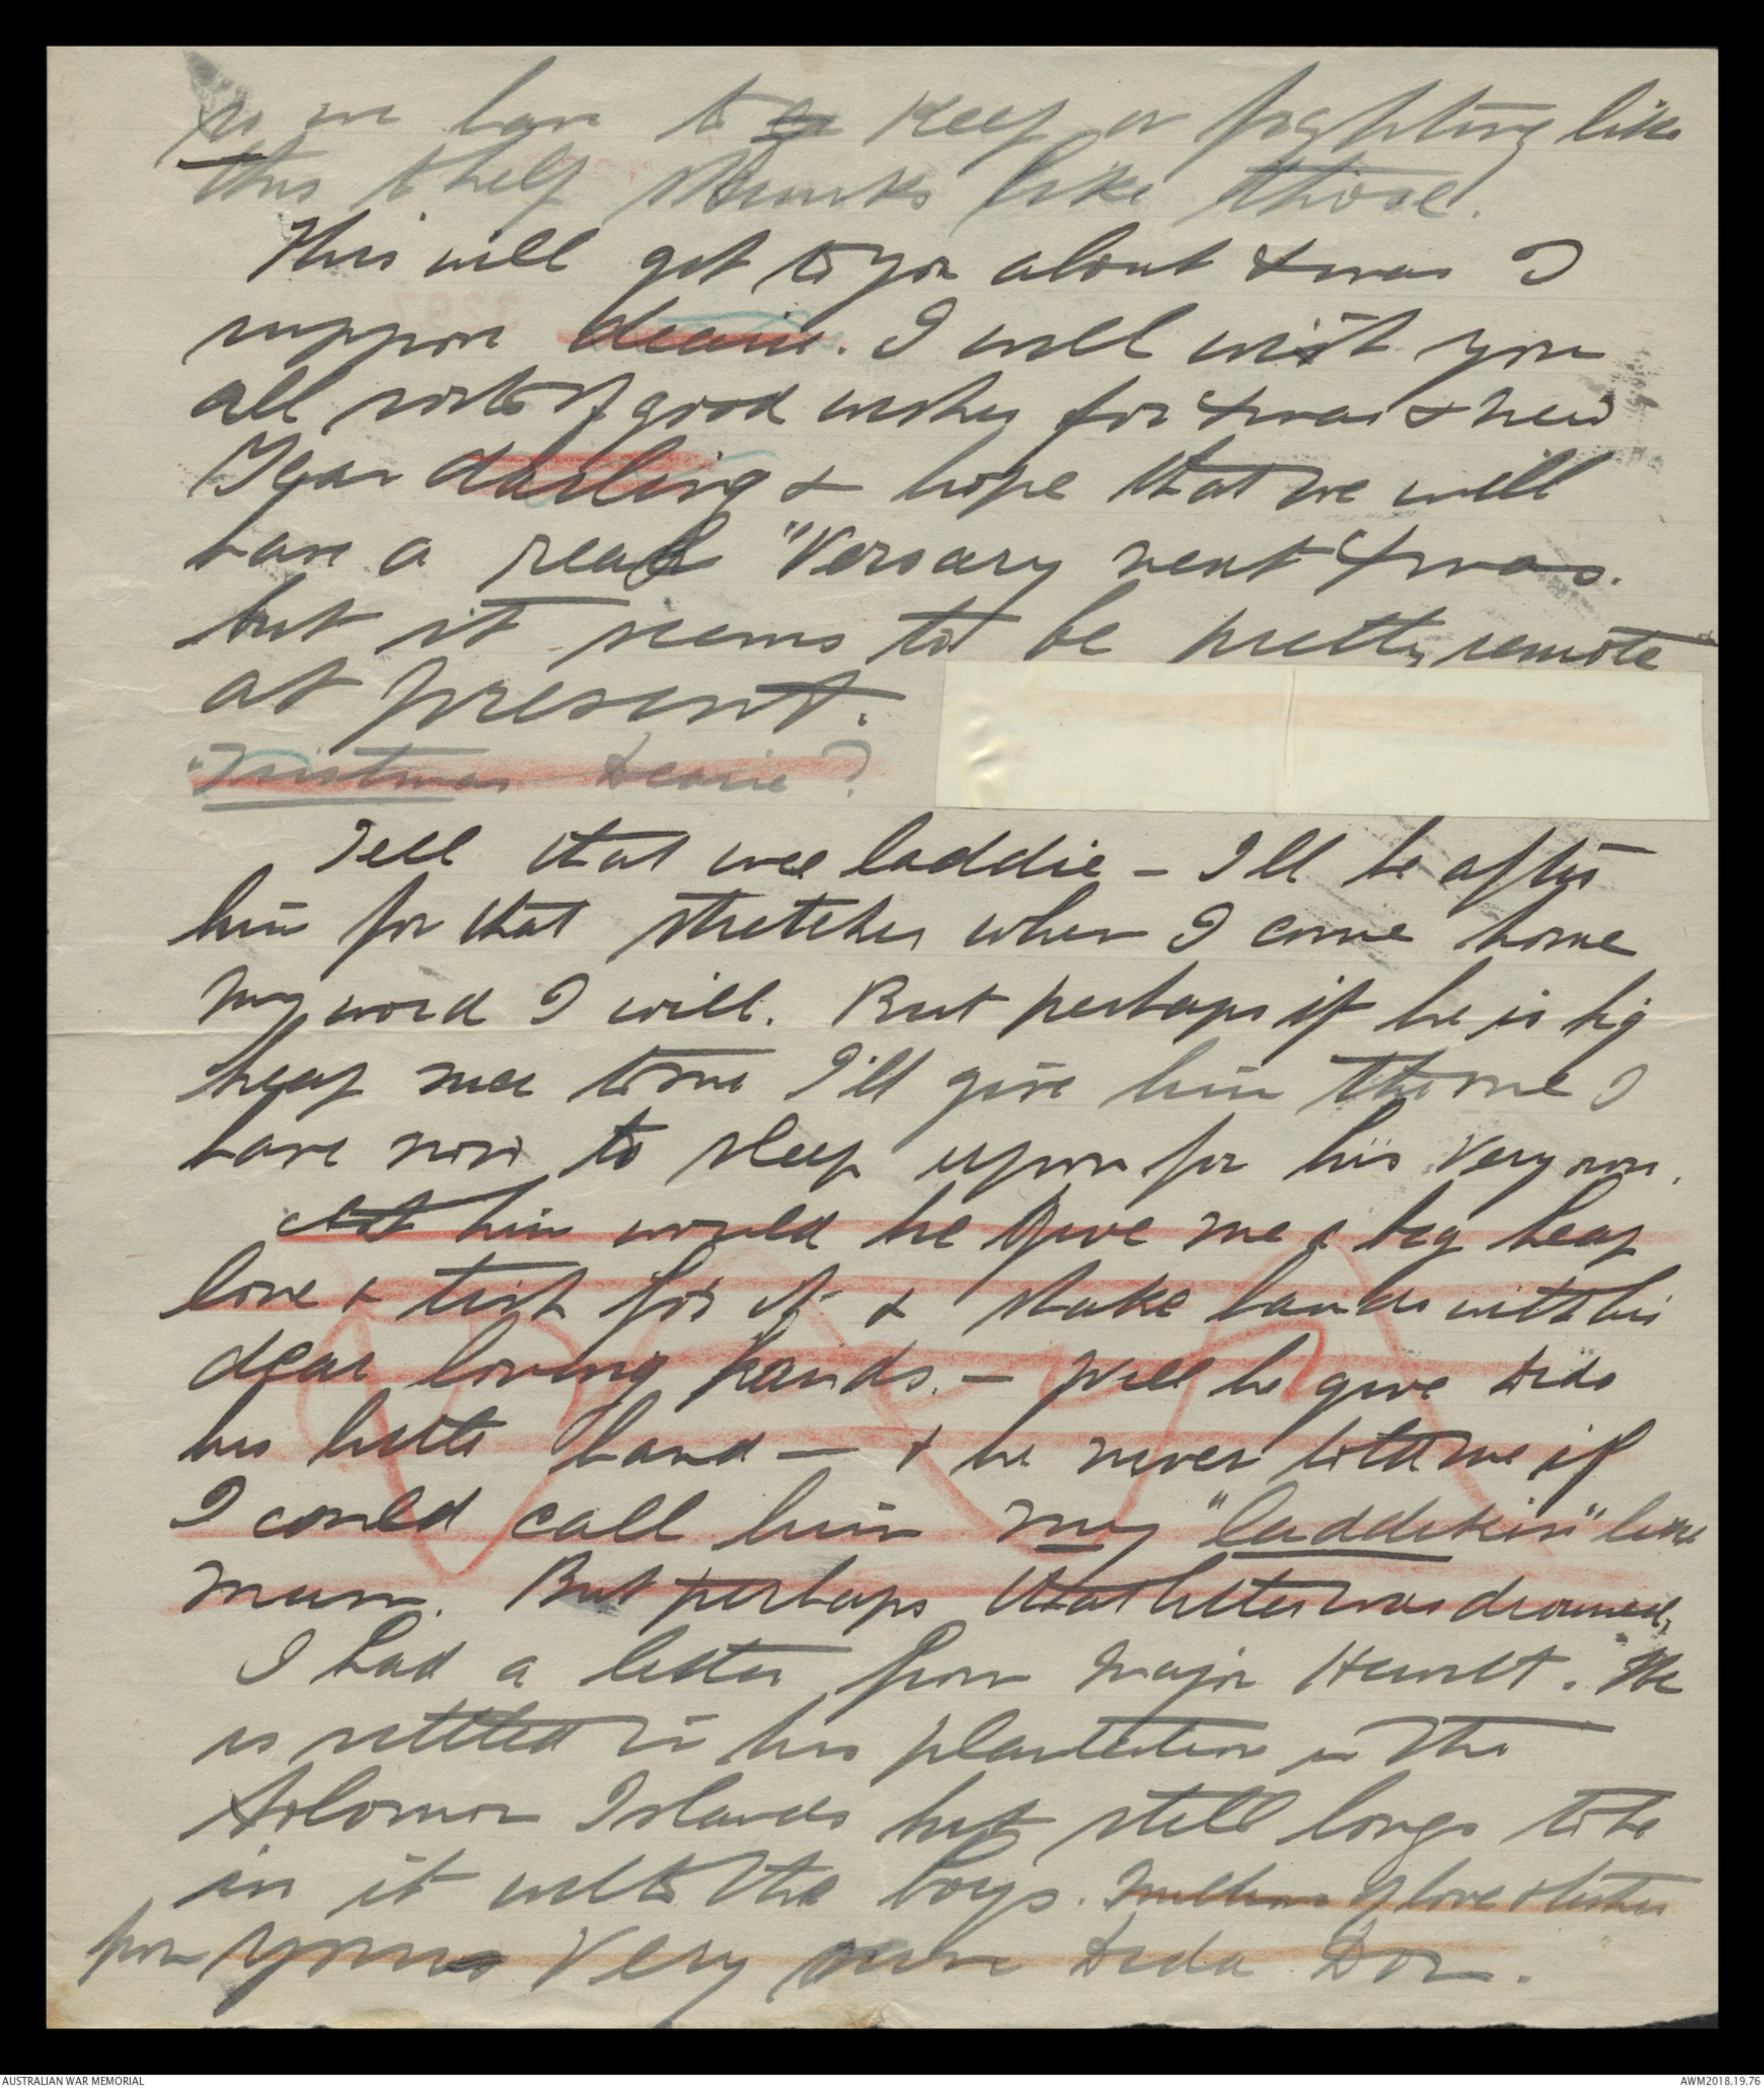 so we have to go keep on fighting like
this & help skunks like those.
This will get to you about Xmas I
suppose dearie. I will wish you
all sorts of good wishes for Xmas & New
Year darling & hope that we will
have a real "Versary next Xmas.
but it seems to be pretty remote
at present.
"Tristmas Dearie?
Tell that wee laddie – I'll be after
him for that stretcher when I come home
my word I will. But perhaps if he is big
heap nice to me I'll give him the one I
have now to sleep upon for his very own.
Ast him would he give me a big heap
love & tish for it & shake hands with his
dear loving hands. – Will he give Dida
his little hand – & he never told me if
I could call him my "laddikin" like
mum. But perhaps that letter was drowned.
I had a letter from Major Heurlt. He
is settled in his plantation in the
Solomon Islands but still longs to be
in it with the boys. Millions of love & tishes
from yours Very own Dida Don.
AUSTRALIAN WAR MEMORIAL
AWM2018.19.76